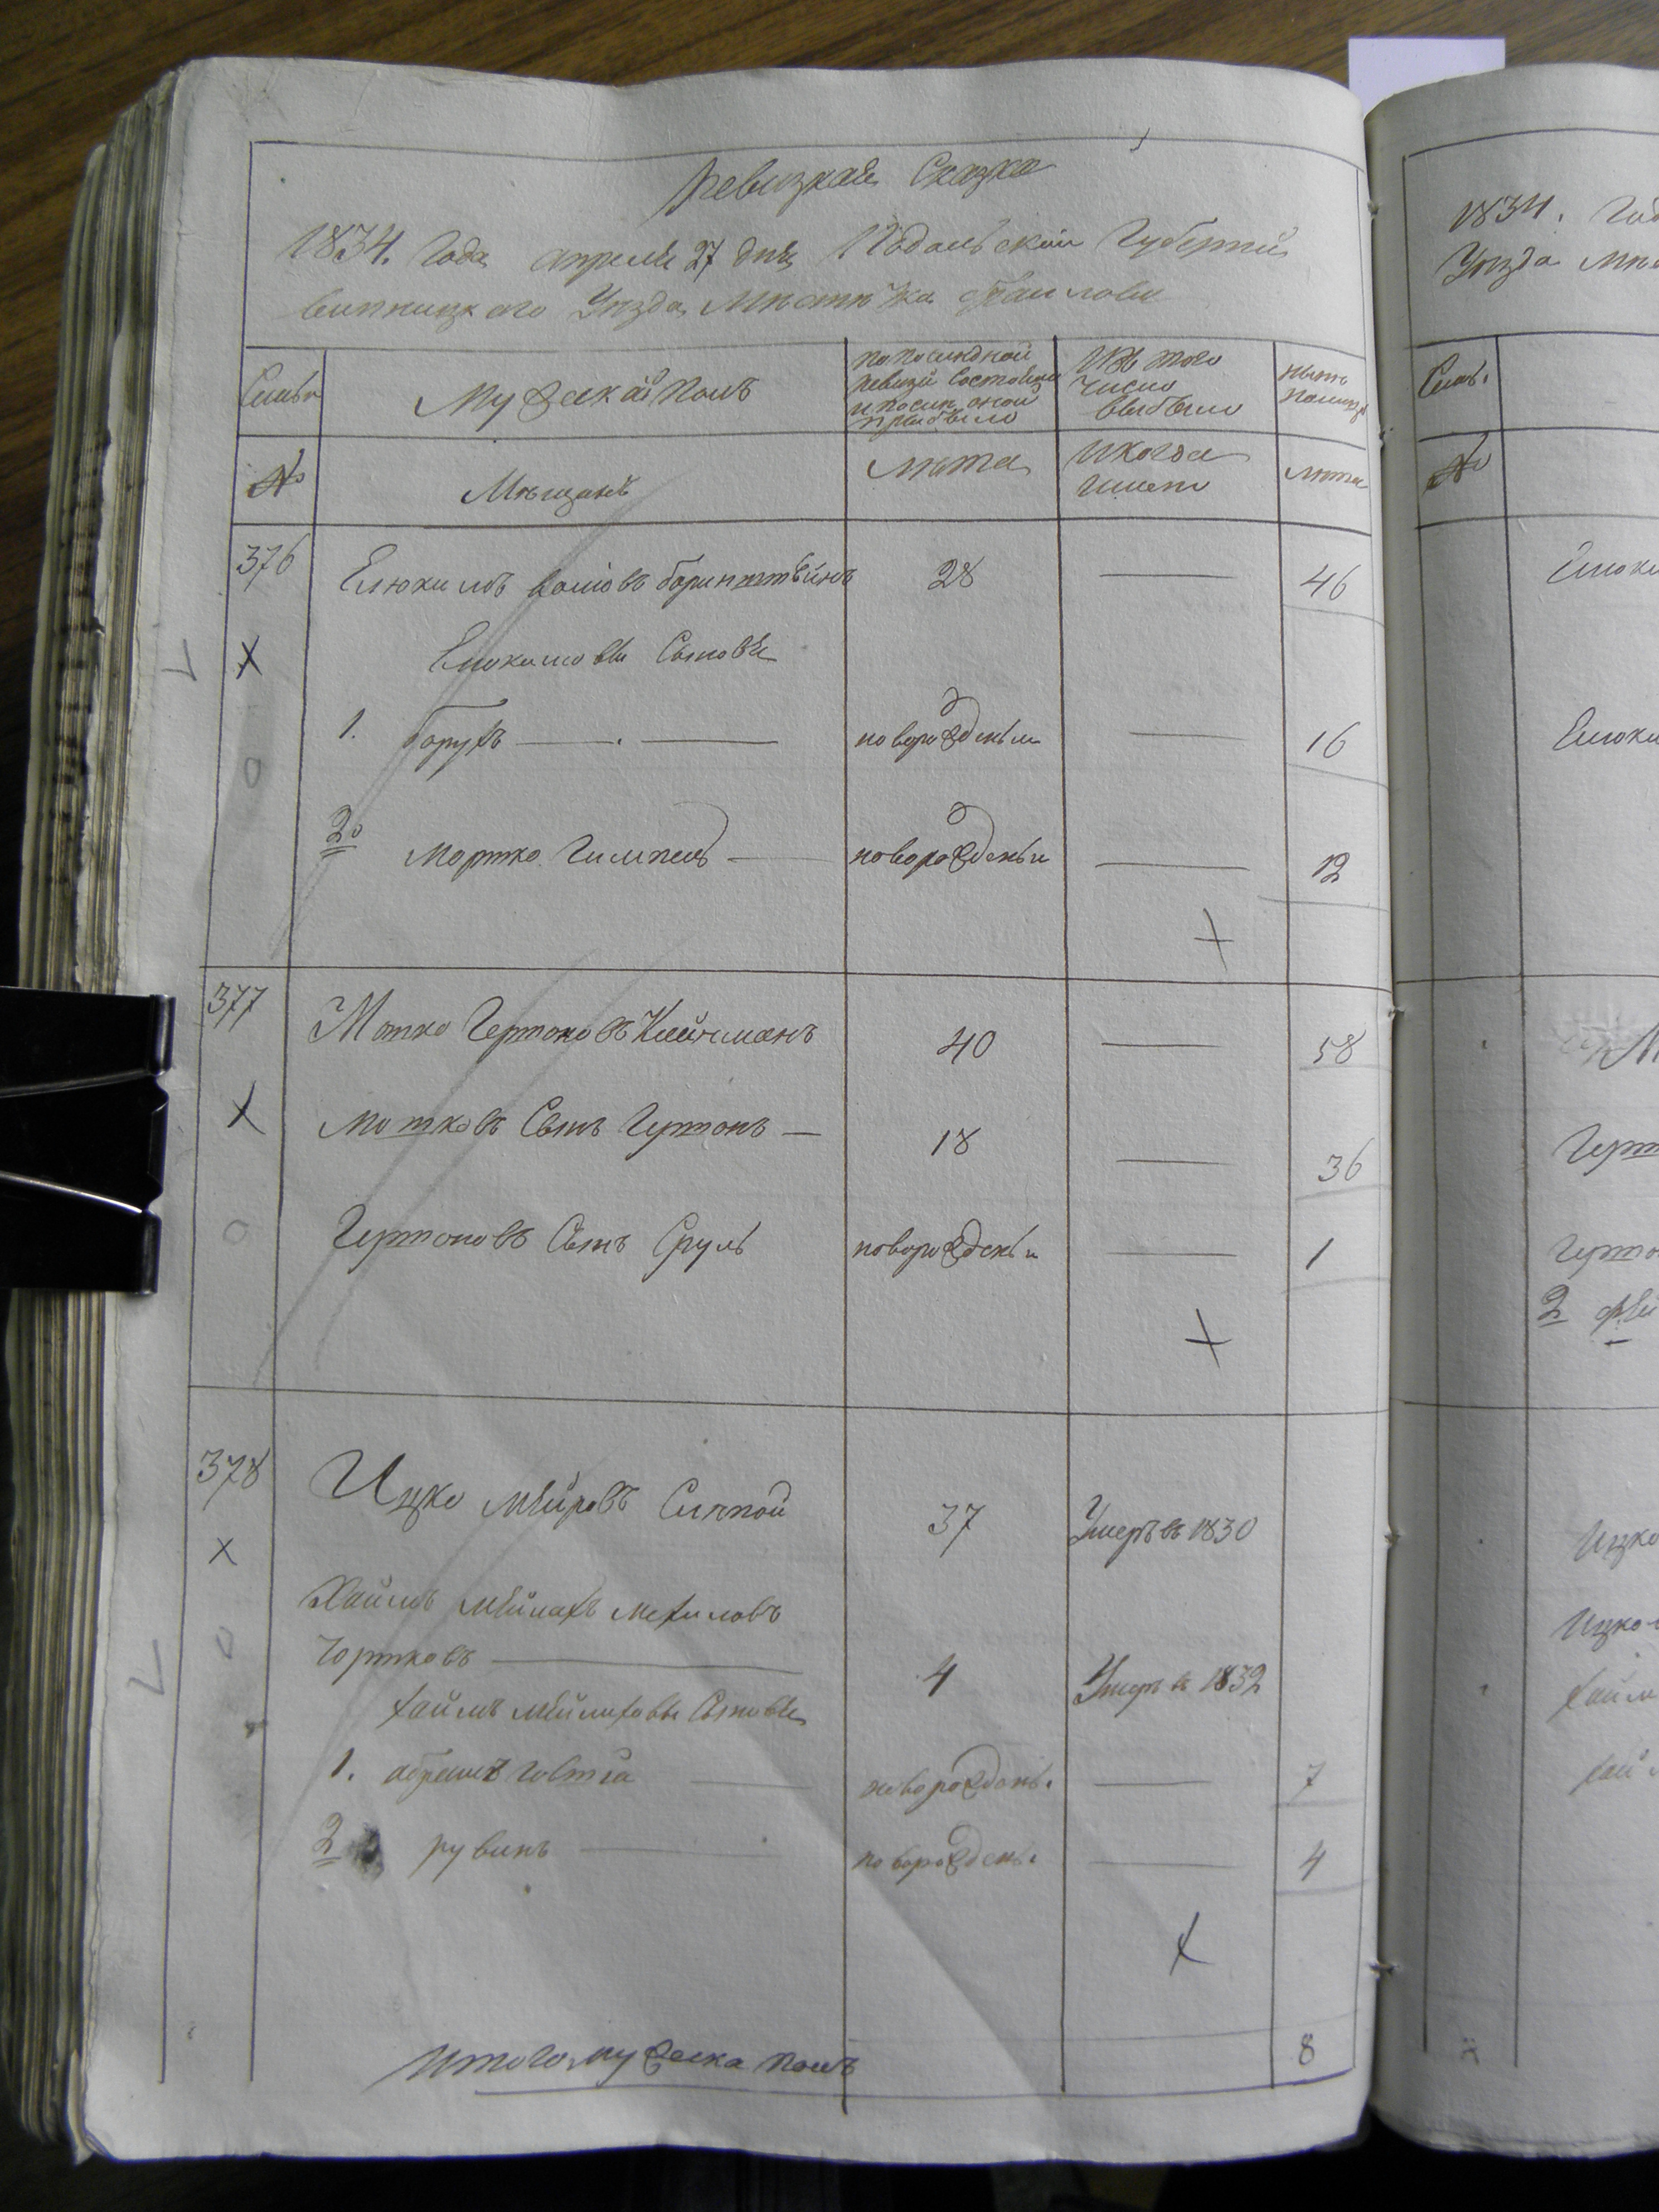 Ревизкая Сказка
1834. Года апреля 27 дня Подольской Губернии
винницкого Уезда Местечка браилова
Семьи
Мужескай полъ
По последной
ревизи состояло
и после оной
прибыло
Изъ того
число
выбыло
ныне
налицо
№
Мещанъ
лета
Когда
имено
лета
376
28
46
Сыновья
1. борухъ
новорожденъи
16
2
мортко Гимпель
новорожденъи
12
377
Мотко Гершоновъ Клейнманъ
40
58
мотковъ Сынъ Гершонъ
18
36
Гершоновъ Сынъ Сруль
новорожденъи
1
378
Ицко мейровъ Слепой
37
Умеръ въ 1830
Хаимъ мейлахъ мехиловъ
Чортковъ
4
Умеръ въ 1832
хаимъ мейлиховы Сыновья
1. абрамъ
новорожденъ
7
2 рувинъ
новорожденъ
4
Итого мужеска полъ
8
1834. Год
Уезда мес
Семь.
№
М
Герш
Гершо
2
Ицко
Ицко
хаим
хаи